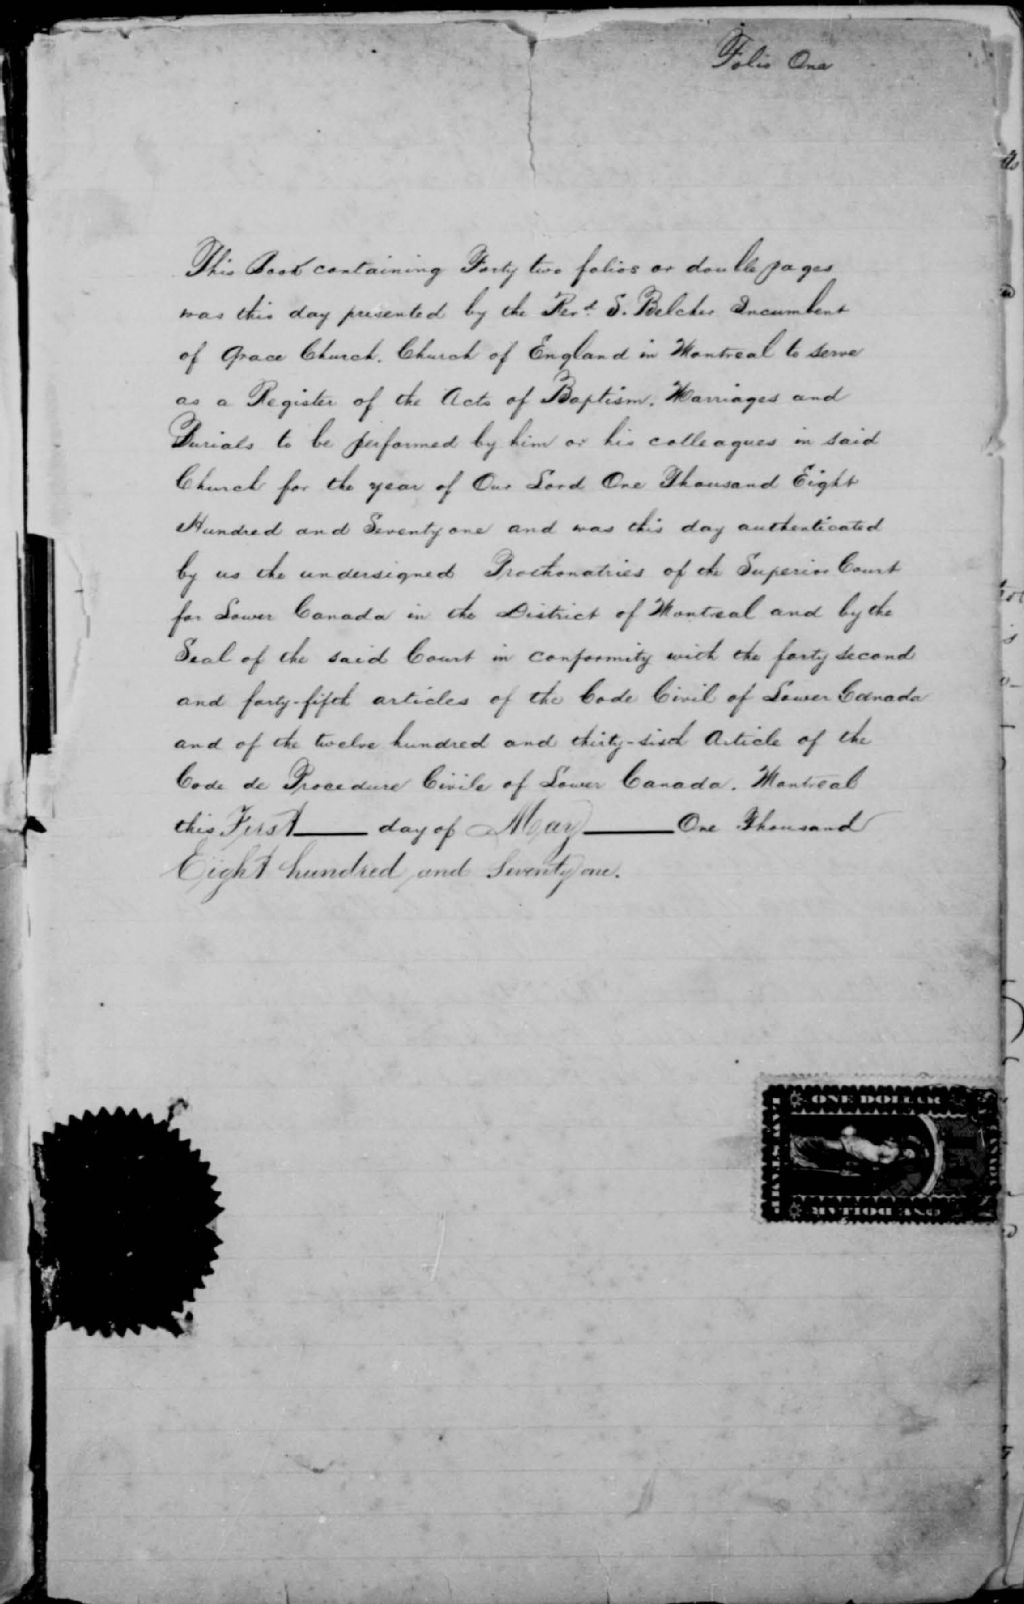 Folio One
This Book containing Forty two folios or double pages
was this day presented by the Revd. S. Belcher Incumbent
of Grace Church. Church of England in Montreal to serve
as a Register of the Acts of Baptism. Marriages and
Burials to be performed by him or his colleagues in said
Church for the year of Our Lord One Thousand Eight
Hundred and Seventy one and was this day authenticated
by us the undersigned Prothonatries of the Superior Court
for Lower Canada in the District of Montreal and by the
Seal of the said Court in conformity with the forty second
and forty-fifth articles of the Code Civil of Lower Canada
and of the twelve hundred and thirty-sixth Article of the
Code de Procedure Civile of Lower Canada. Montreal
this First day of May One Thousand
Eight hundred and Seventy one.
ONE DOLLAR
LAW STAMP
CANADA
ONE DOLLAR